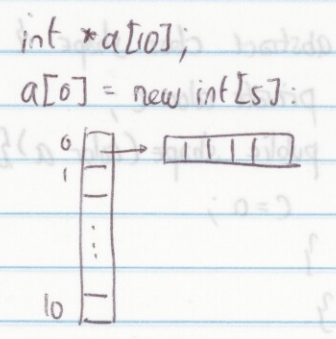 int *a[10];
a[0] = new int[5]:
0
1
10